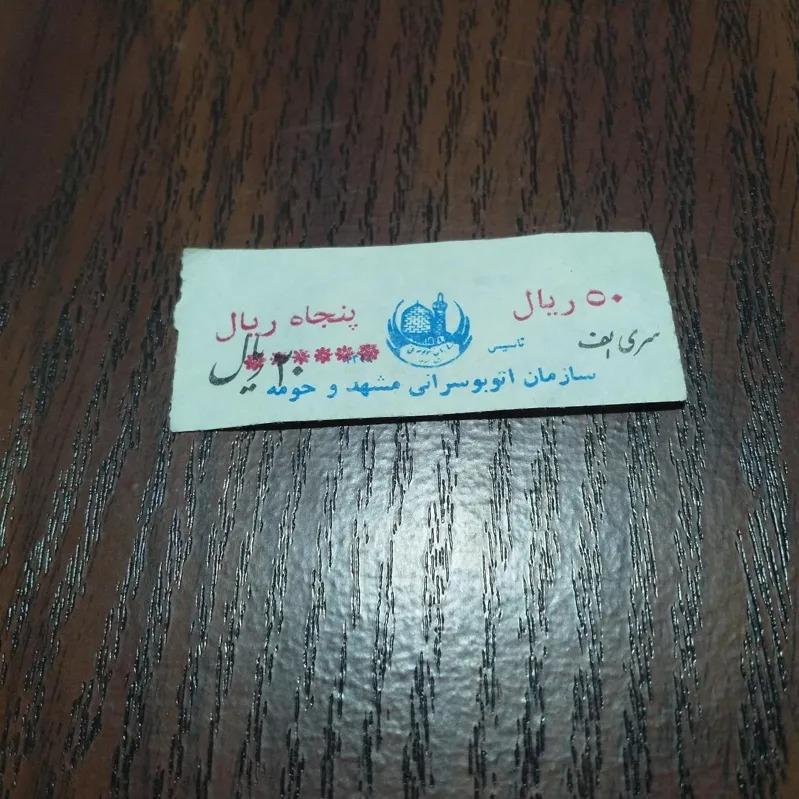 ۵۰ ریال
پنجاه ریال
سری الف
تاسیس
۲۰ ریال
سازمان اتوبوسرانی مشهد و حومه